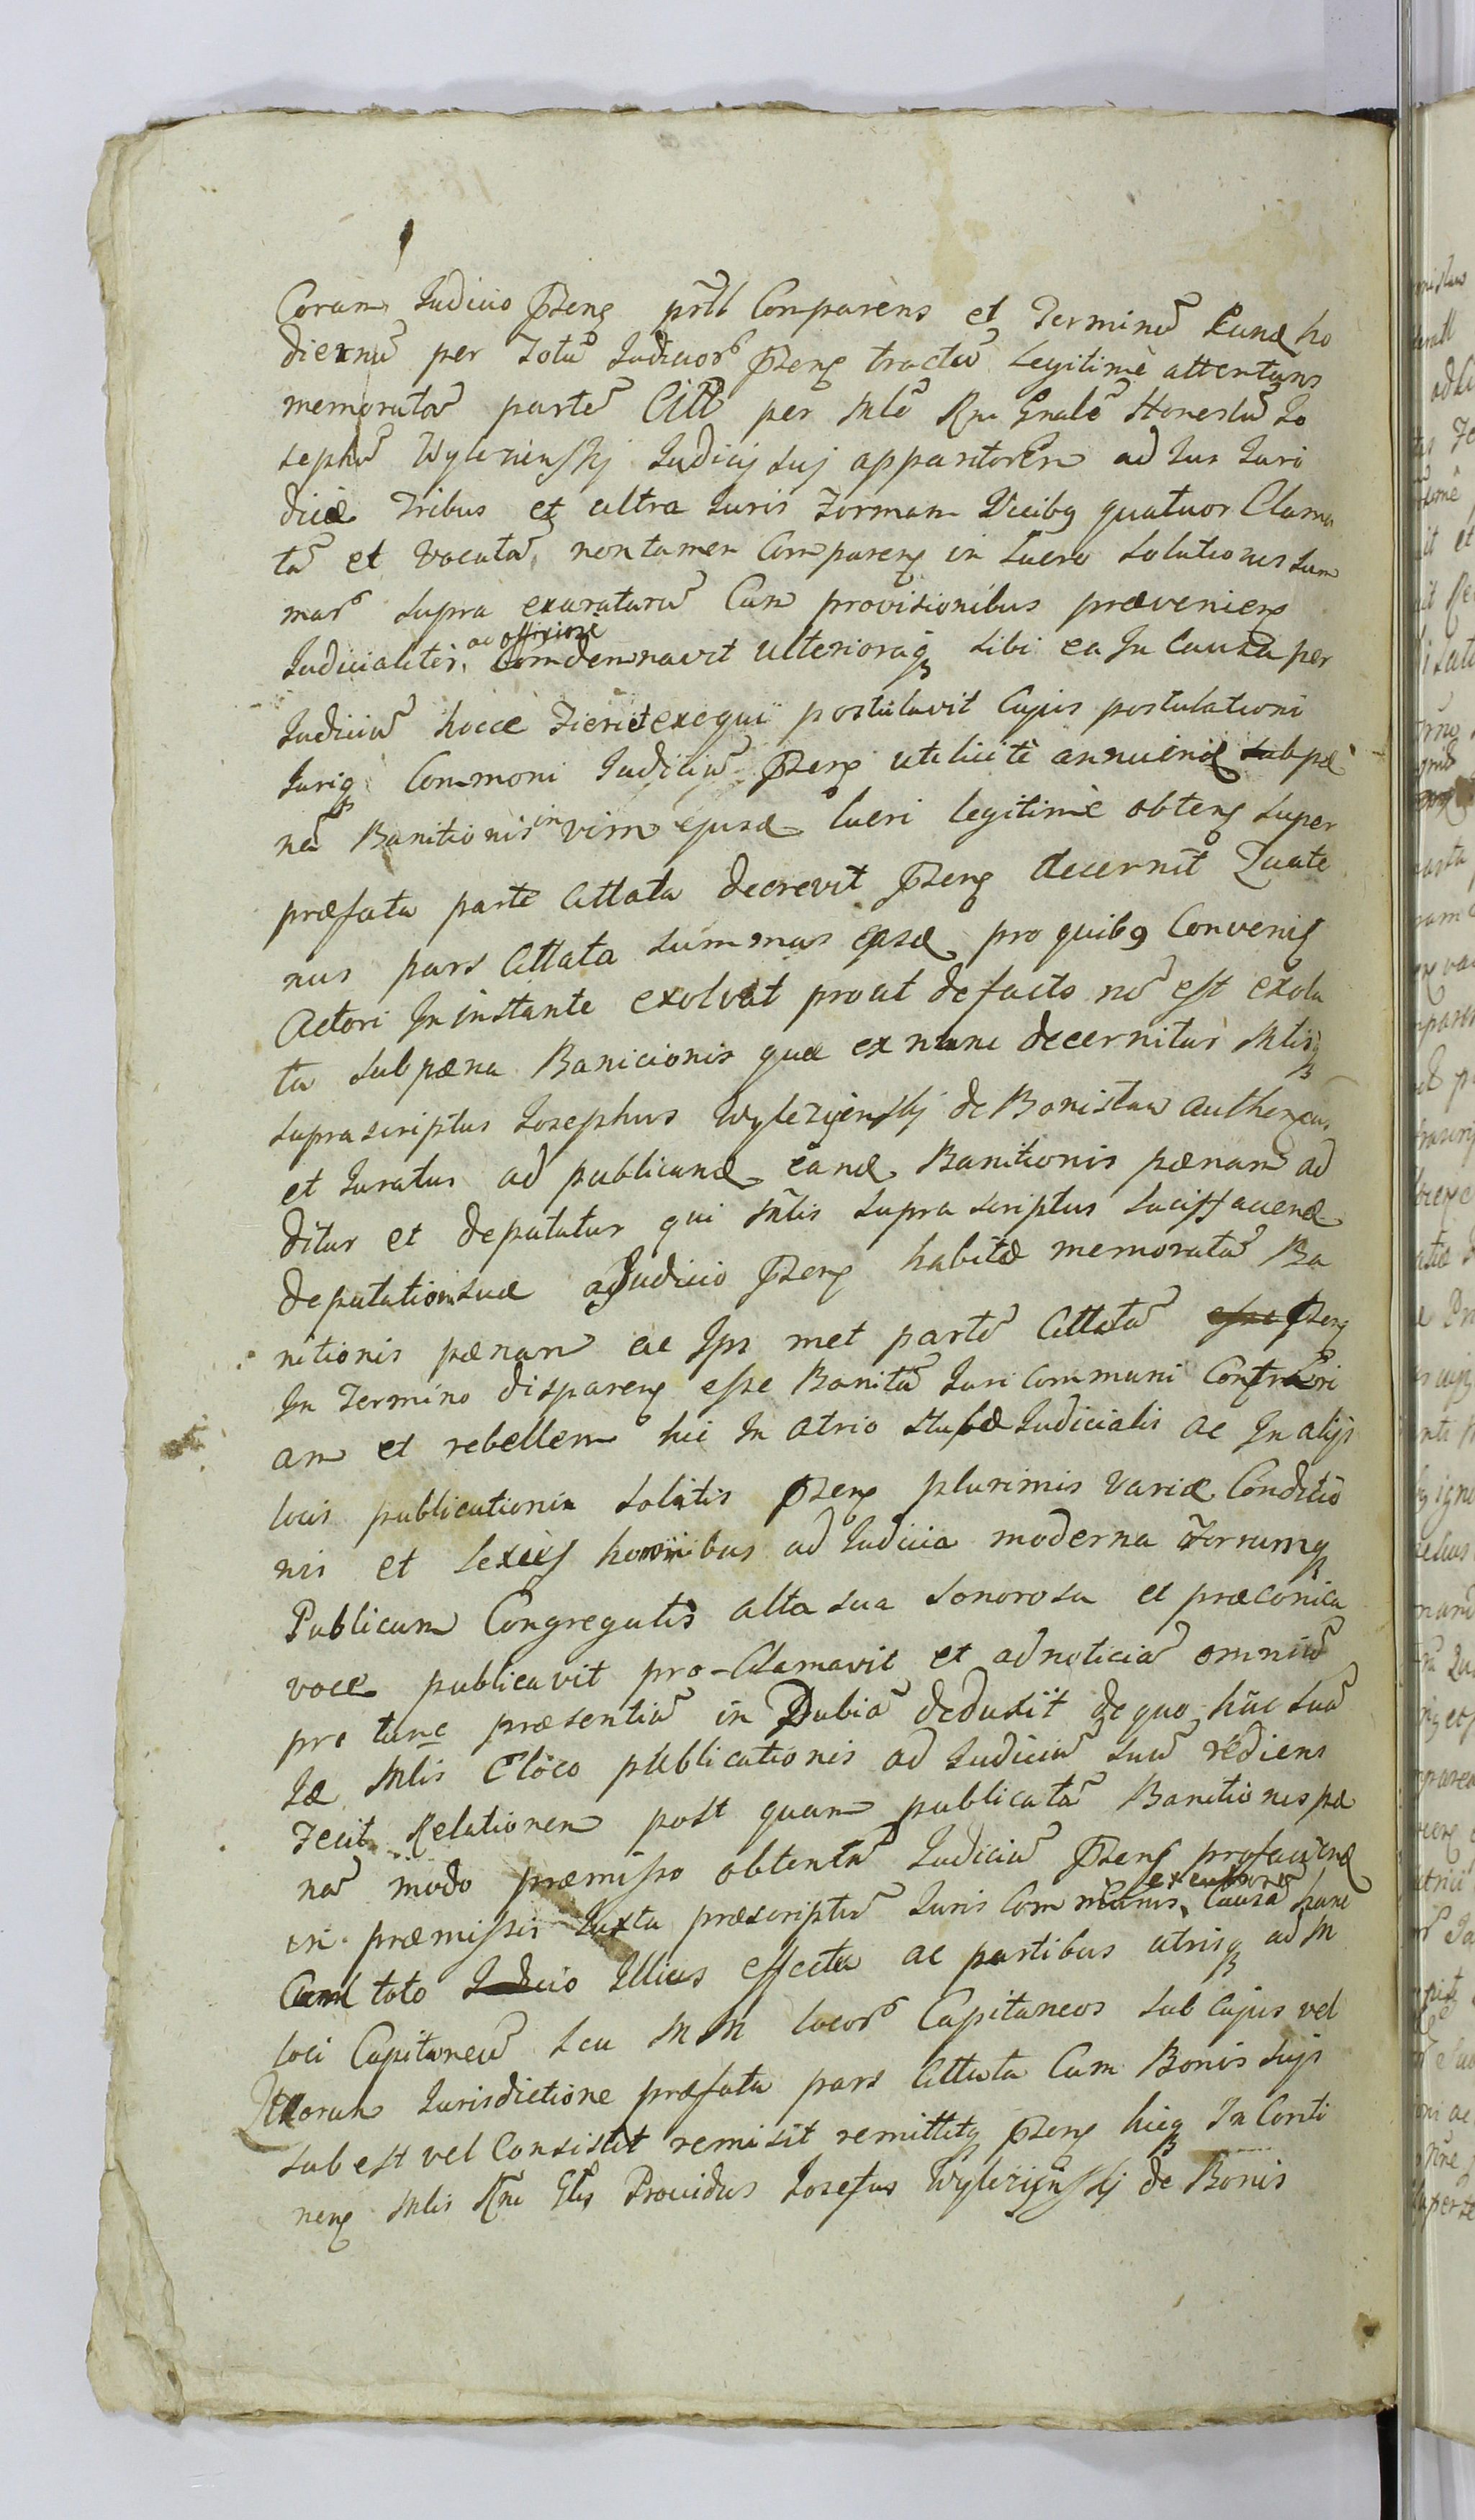 Coram Judicio Pzenʒ prtt Comparens et Terminū Eund ho
diernū per Totū Judicior Pzenʒ tractū Legitimè attentans
memoratā partē Citt per Mlē Rni Gnalē Honestū Jo
sephū Wylezienskj Judicij suj apparitorem ad Jus Juri
dice Tribus et ultra Juris Formam Vicibꝫ quatuor Clama
tā et Vocatā, non tamen Comparenꝫ in Lucro solutionis sum
mar supra exaratarū Cum provisionibus prævenienꝫ
Judicialitèr, ac offrioze Comdemnavit ulterioraqꝫ sibi ea Jn Causa per
Judiciū hocce Fieri et exequi postulavit Cujus postulationi
Juriqꝫ Commoni Judiciū Pzenꝫ utilicitè annuend sub pæ
nā Banitionis in vim ejusd lucri legitimè obtenꝫ super
præfata parte Cittata decrevit Pzenꝫ decernit Quate
nus pars Cittata summas epsd pro quibꝫ Convenit
Actori Jn instante exolvat prout de facto nō est exolu
ta sub pæna Banicionis quæ ex nunc decernitur Mlisqꝫ
suprascriptus Josephus Wylezijenskj de Bonislaw
et Juratus ad publicand eand Banitionis pænam ad
ditur et deputatur qui Mlis supra scriptus
deputationi suæ a Judicio Pzenꝫ habitæ memoratā Ba
nitionis pænam ac Jps met partē Cittatā esse Pzenꝫ
Jn Termino disparenꝫ esse Banitā Juri Communi Contrari
am et rebellem hic Jn atrio stubæ Judicialis ac Jn alijs
locis publicationis solitis Pzenꝫ plurimis Variæ Conditio
nis et Sexus hominibus ad Judicia moderna Forrumqꝫ
Publicum Congregatis alta sua sonorosa et præconica
voce publicavit pro-Clamavit et ad noticiā omniū
pro tunc præsentiū in Dubiā deduxit de quo hac sua
Jd Mlis E loco publicationis ad Judiciū suū rediens
Fecit Relationem post quam publicatā Banitionis pæ
nā modo præmisso obtentā Judiciū Pzenꝫ profaciend
in præmissis Juxta præscriptū Juris Communis, Causā hanc
Cum toto Judicio Jllius effectu ac partibus utrisqꝫ ad M
loci Capitaneū seu MM locor Capitaneos sub Cujus vel
Quorum Jurisdictione præfata pars Cittata Cum Bonis suis
subest vel Consistit remisit remittitqꝫ Pzenꝫ hicqꝫ Jn Conti
nenꝫ Mlis Rni Glis Providus Josefus Wylezijnskj de Bonis